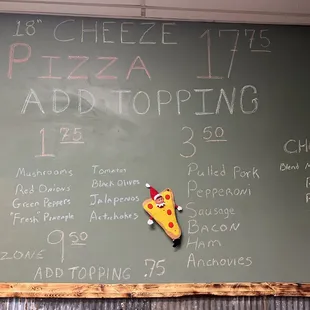 18" CHEEZE
PIZZA 17 75
ADD TOPPING
1 75
3 50
Mushrooms
Red Onions
Green Peppers
"Fresh" Pineapple
Tomatoes
Black Olives
Jalapenos
Artichokes
Pulled Pork
Pepperoni
Sausage
BACON
Ham
Anchovies
ZONE 9 50
ADD TOPPING .75
CH
Blend M